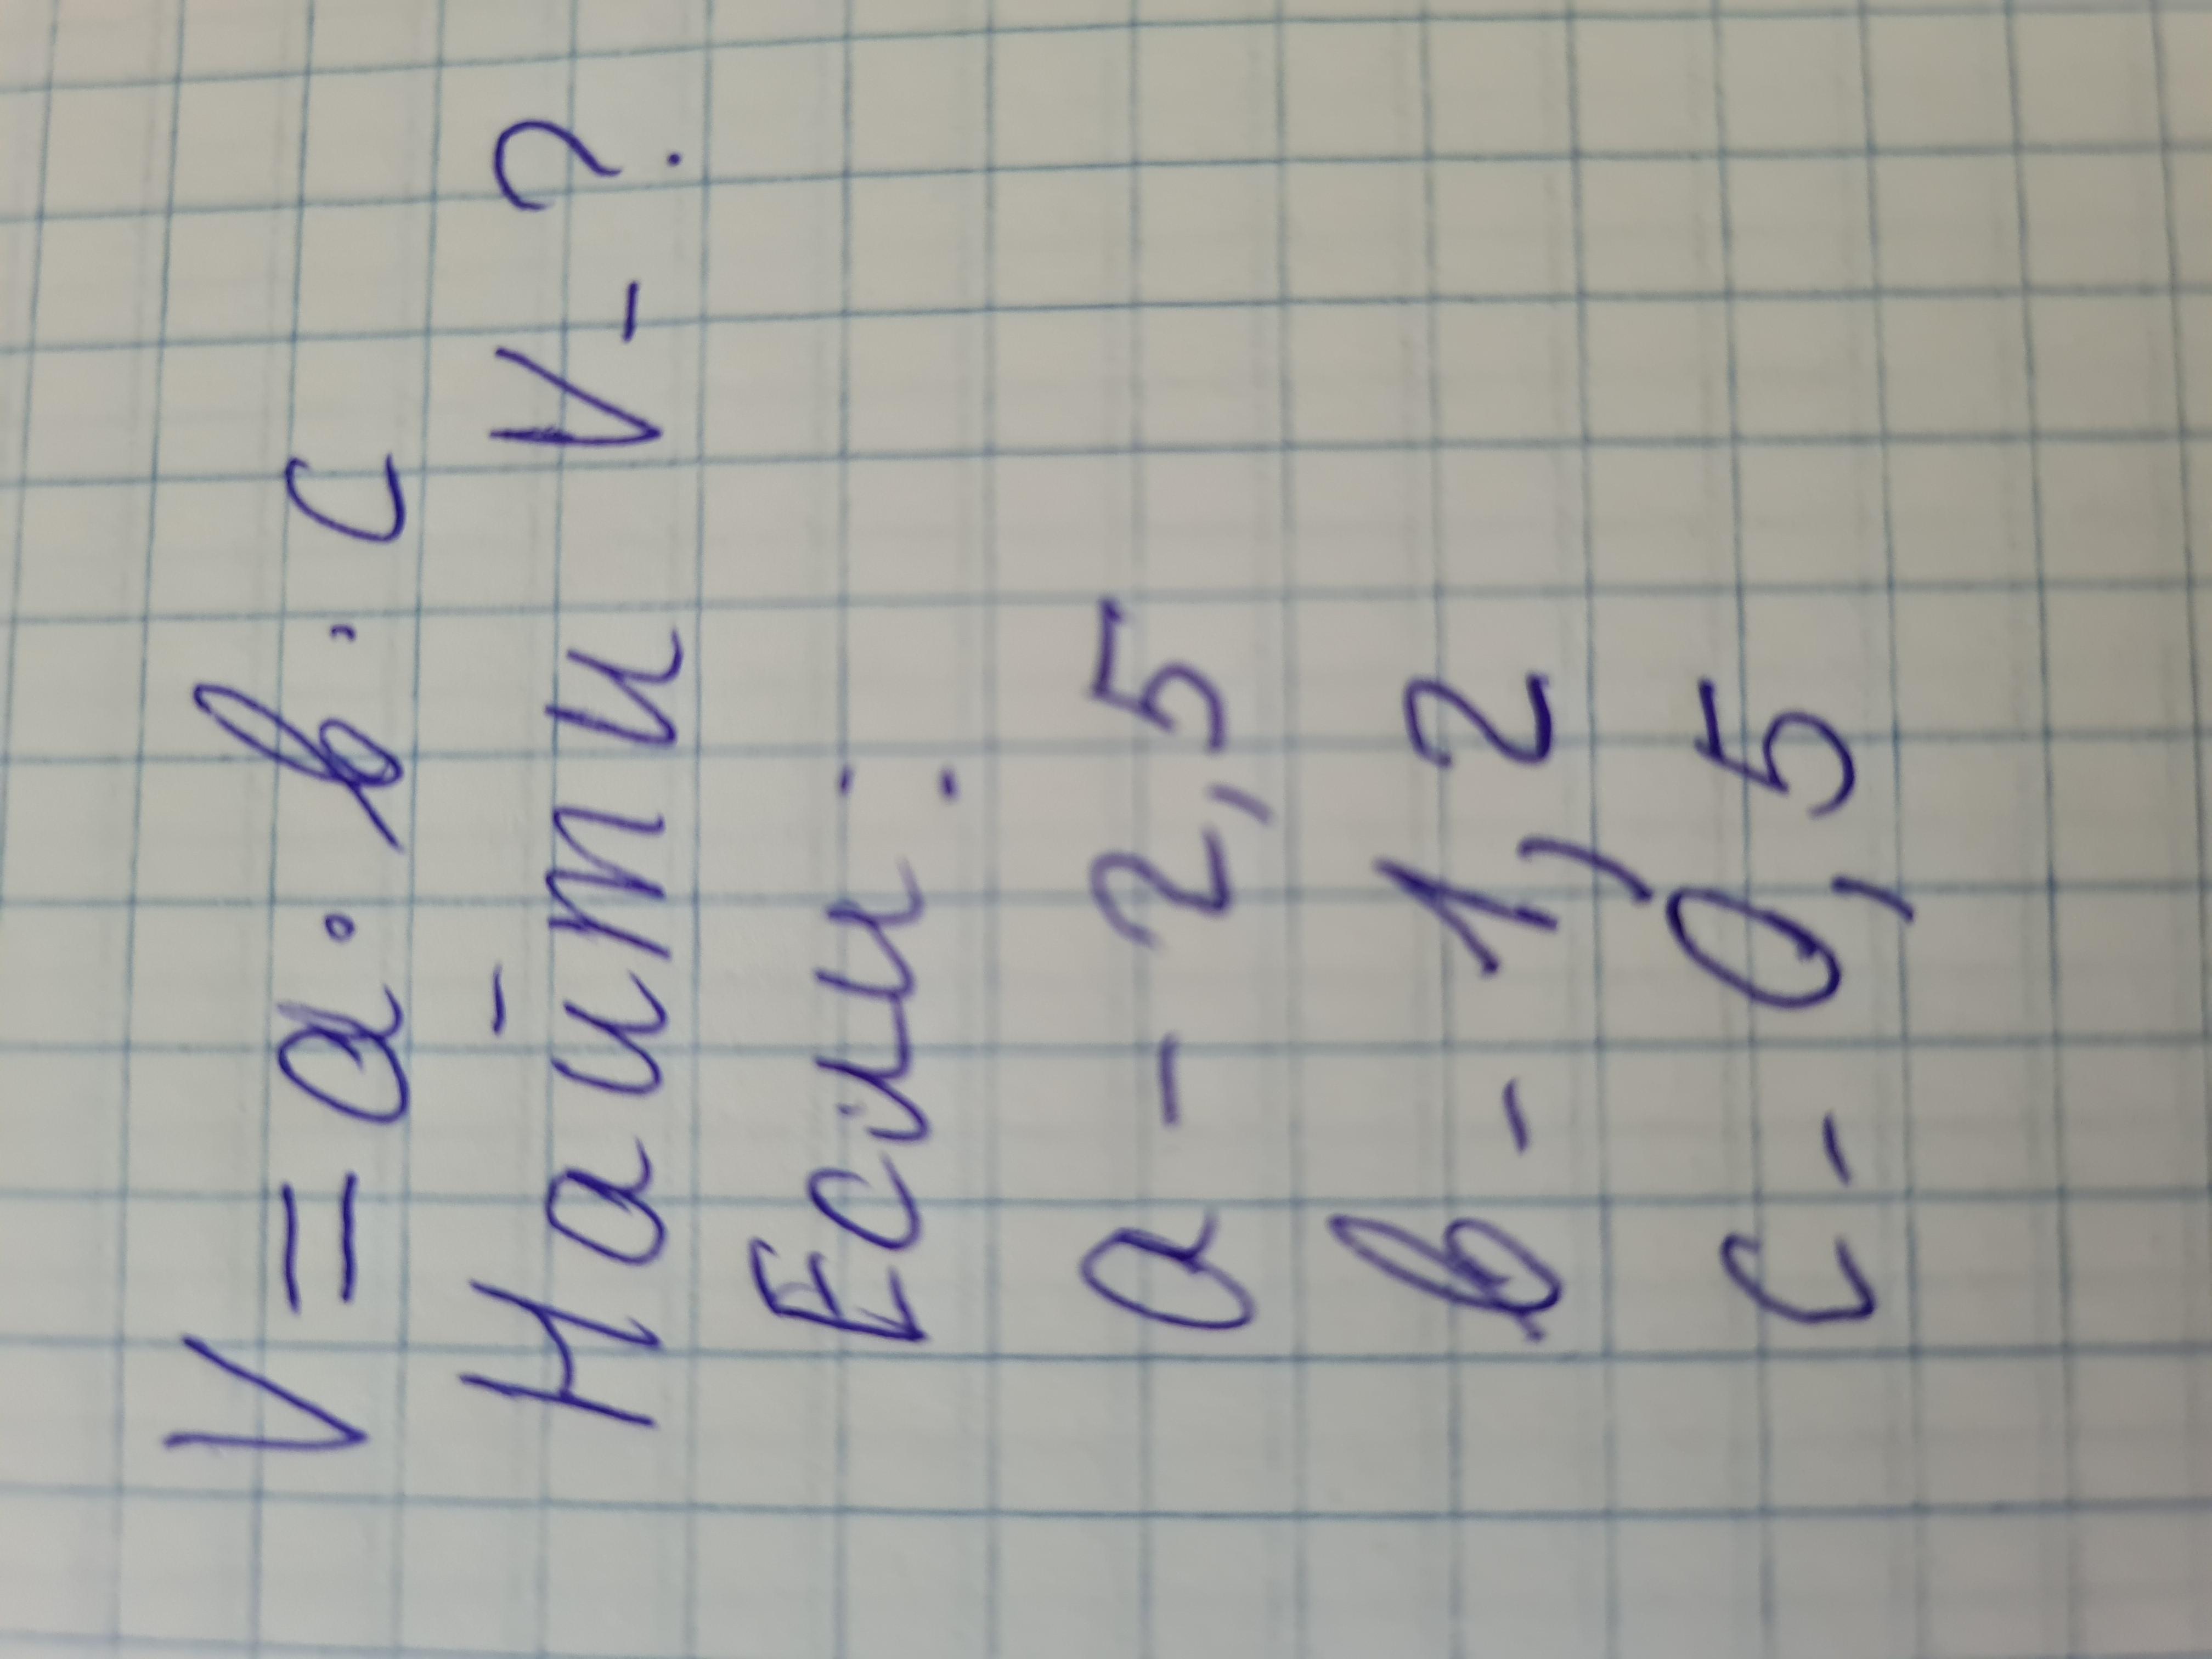 V = a · b · c
Найти V - ?
Если:
a - 2,5
b - 1,2
c - 0,5